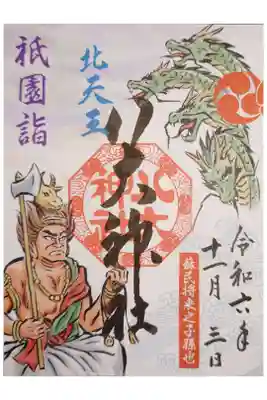 令和六年
十一月三日
蘇民将来之子孫也
神社
北天王
祇園詣